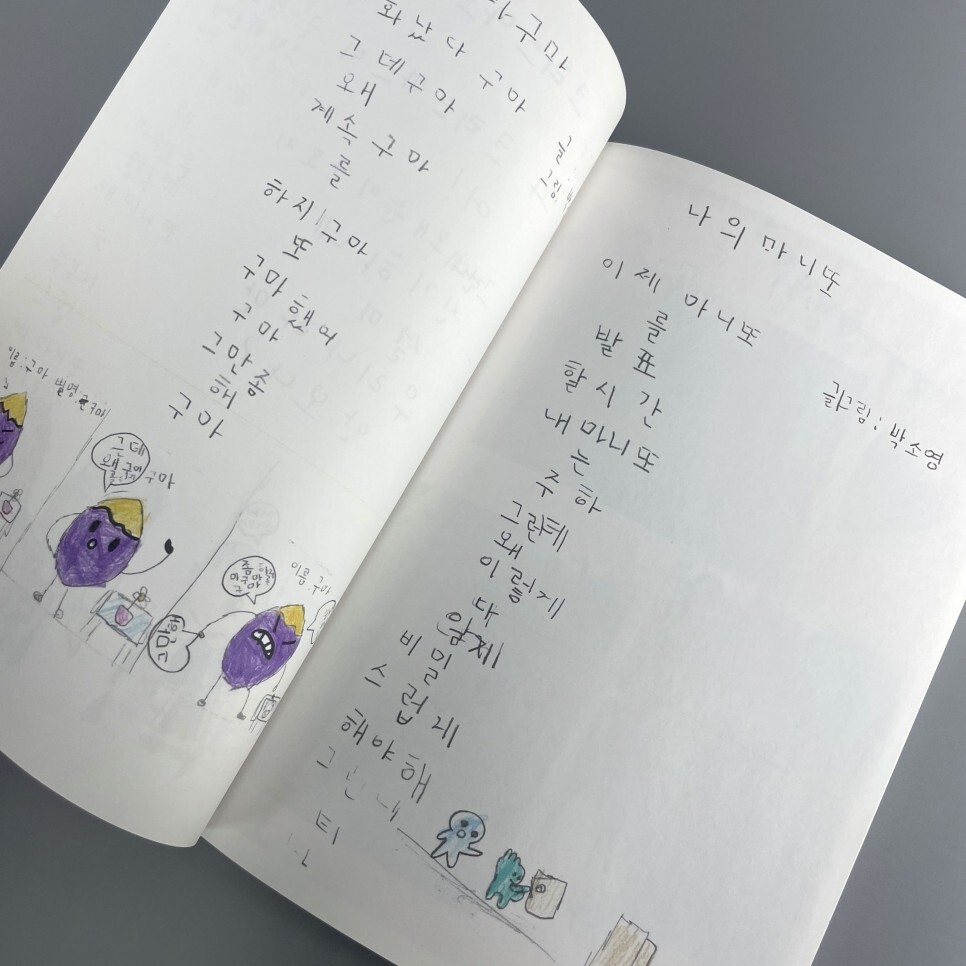 구마
화났다 구마
그데구마
왜
계속 구마
를
하지구마
또
구마했어
구마
그만좀
해
구마
글:
그림:
이름:구마 별명
근데
왜 구마
구마
이름:구마
그만해
나의 마니또
글그림: 박소영
이제 마니또
를
발표
할시간
내 마니또
는
주하
그런테
왜
이렇게
다
알게
비밀
스럽게
해야해